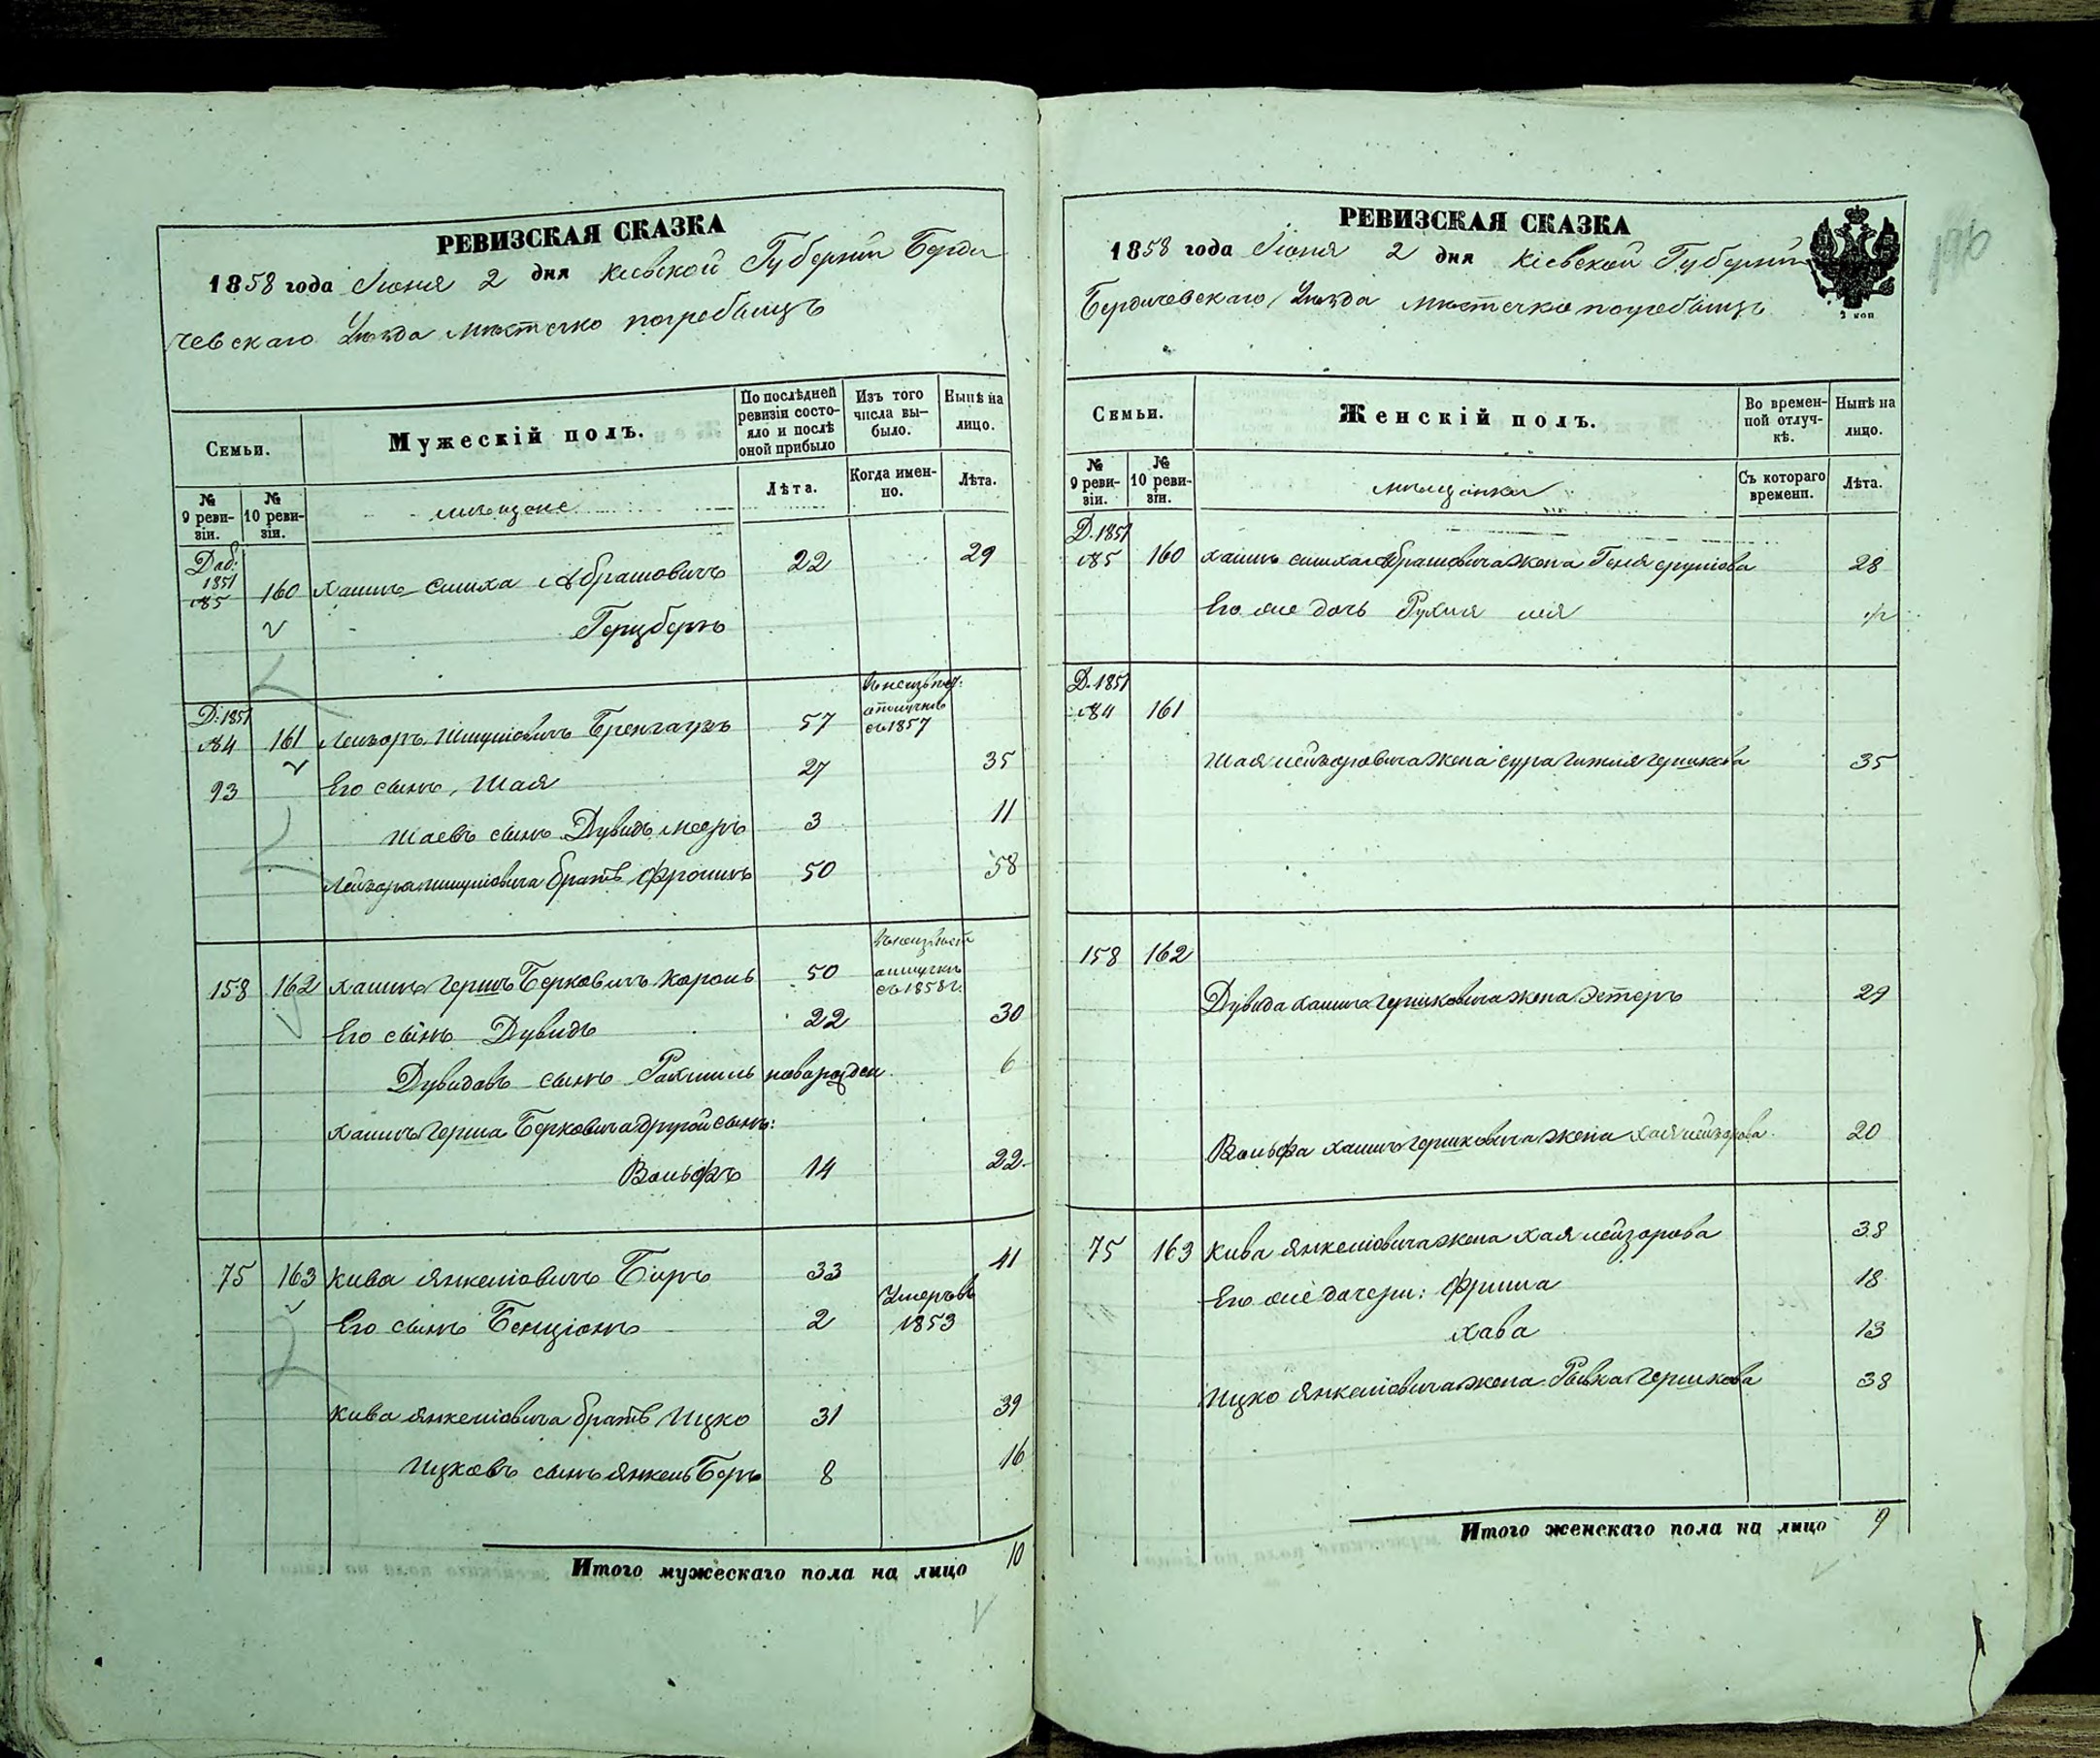 РЕВИЗСКАЯ СКАЗКА
1858 года Іюня 2 дня Кіевской Губерніи Берди
чевскаго Уѣзда мѣстечко погребищъ
Семьи.
Мужескій полъ.
По послѣдней ревизіи состо-яло и послѣ оной прибыло
Изъ того числа вы-было.
Нынѣ на лицо.
№ 9 реви-зіи.
№ 10 реви-зіи.
мѣщане
Лѣта.
Когда имен-но.
Лѣта.
Доб: 1851
№5 160 Хаимъ Симха Абрамовичъ 22 29
Герцбергъ
Д: 1851
№4 161 Лейзоръ Шмулiовичъ 57
отлучкѣ
съ 1857
93 Его сынъ, Шая 27 35
Шаевъ сынъ Дувидъ Мееръ 3 11
Лейзора Шмулiовича братъ Фроимъ 50 58
158 162 Хаимъ Гершъ Берковичъ Король 50
отлучкѣ
съ 1858 г.
Его сынъ Дувидъ 22 30
Дувидовъ сынъ Рахмиль новорожден 6
Хаимъ Герша Берковича другой сынъ:
Вольфъ 14 22
75 163 Кива Янкелiовичъ 33 41
Его сынъ Бенціонъ 2 Умеръ въ 1853
Кива Янкелiовича братъ Ицко 31 39
Ицковъ сынъ Янкель Беръ 8 16
Итого мужескаго пола на лицо 10
РЕВИЗСКАЯ СКАЗКА
1858 года Іюня 2 дня Кіевской Губерніи
Бердичевскаго Уѣзда мѣстечка погребищъ
2 коп
196
Семьи.
Женскій полъ.
Во времен-ной отлуч-кѣ.
Нынѣ на лицо.
№ 9 реви-зіи.
№ 10 реви-зіи.
мѣщанки
Съ котораго времени.
Лѣта.
Д. 1851
№5 160 Хаимъ Симха Абрамовича жена Геня Сруліова 28
Его же дочь Рухля
Д. 1851
№4 161
Шая Лейзоровича жена Сура Гершкова 35
158 162
Дувида Хаимъ Гершковича жена Эстеръ 29
Вольфа Хаимъ Гершковича жена Хая Лейзорова 20
75 163 Кива Янкелiовича жена Хая Лейзорова 38
Его же дочери: Фрима 18
Хава 13
Ицко Янкелiовича жена Ривка Гершкова 38
Итого женскаго пола на лицо 9